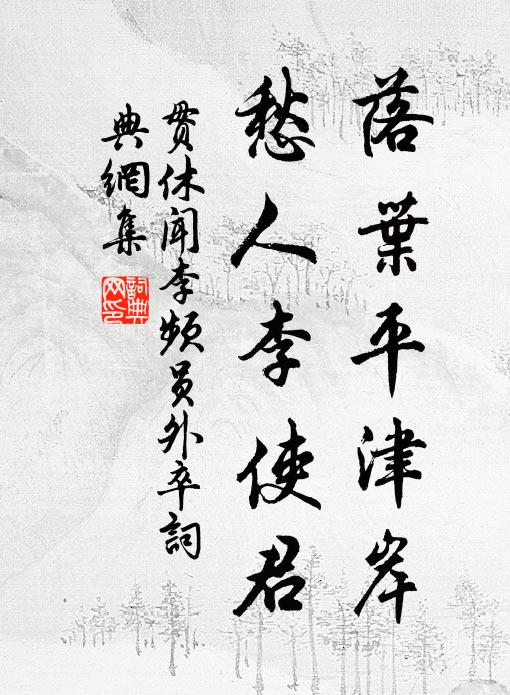 落葉平津岸
愁人李使君
貫休聞李頻員外卒詞
典網集
詞典
网印